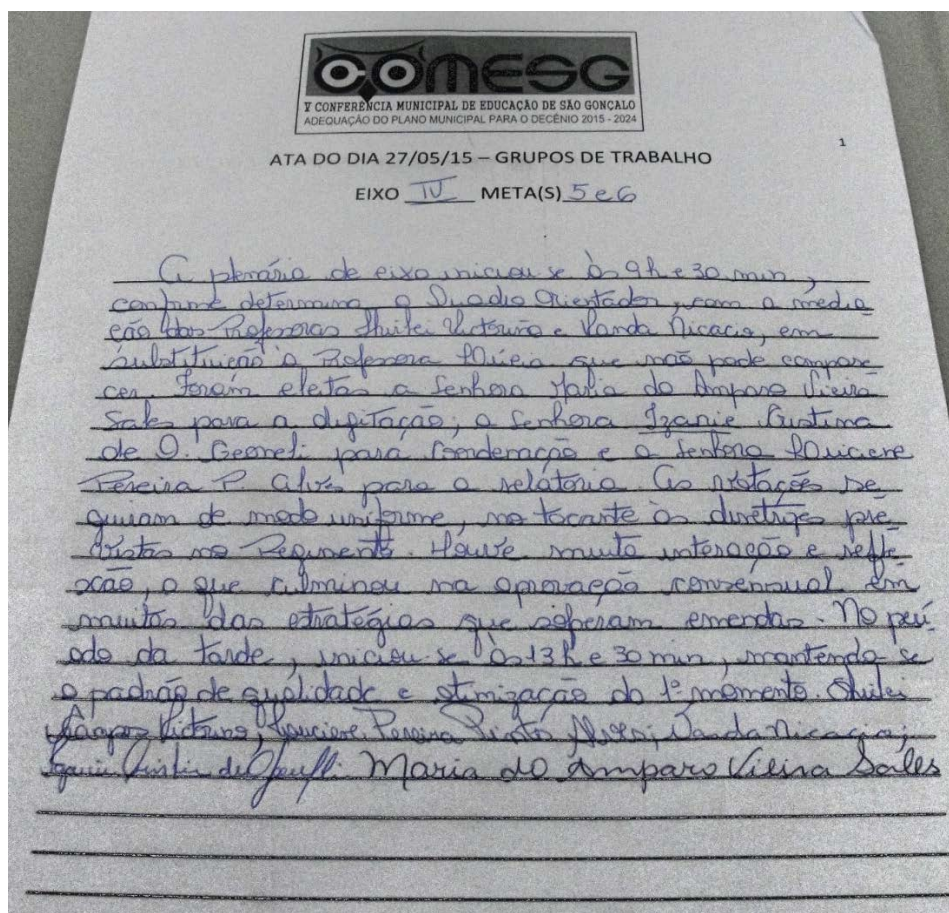 COMESG
V CONFERÊNCIA MUNICIPAL DE EDUCAÇÃO DE SÃO GONÇALO
ADEQUAÇÃO DO PLANO MUNICIPAL PARA O DECÊNIO 2015 - 2024
1
ATA DO DIA 27/05/15 – GRUPOS DE TRABALHO
EIXO IV META(S) 5 e 6
A plenária de eixo iniciou se às 9h e 30 min,
conforme determina o Quadro Orientador, com a media
ção das Professoras Shirlei Victorino e Vanda Nicacia, em
substituição à Professora que não pode compare
cer. Foram eleitas a Senhora Maria do Amparo Vieira
Sales para a digitação; a Senhora Izanie Cristina
de O. para Coordenação e a Senhora Luciene
Pereira P. Alves para a relatoria. As votações se
guiam de modo uniforme, no tocante às diretrizes pre
vistas no Regimento. Houve muita interação e refle
xão, o que culminou na aprovação consensual em
muitas das estratégias que sofreram emendas. No perí
odo da tarde, iniciou-se às 13h e 30 min, mantendo se
o padrão de qualidade e otimização do 1º momento. Shirlei
Campos Victorino, Luciene Pereira Pinto Alves; Vanda Nicacia;
Maria do Amparo Vieira Sales